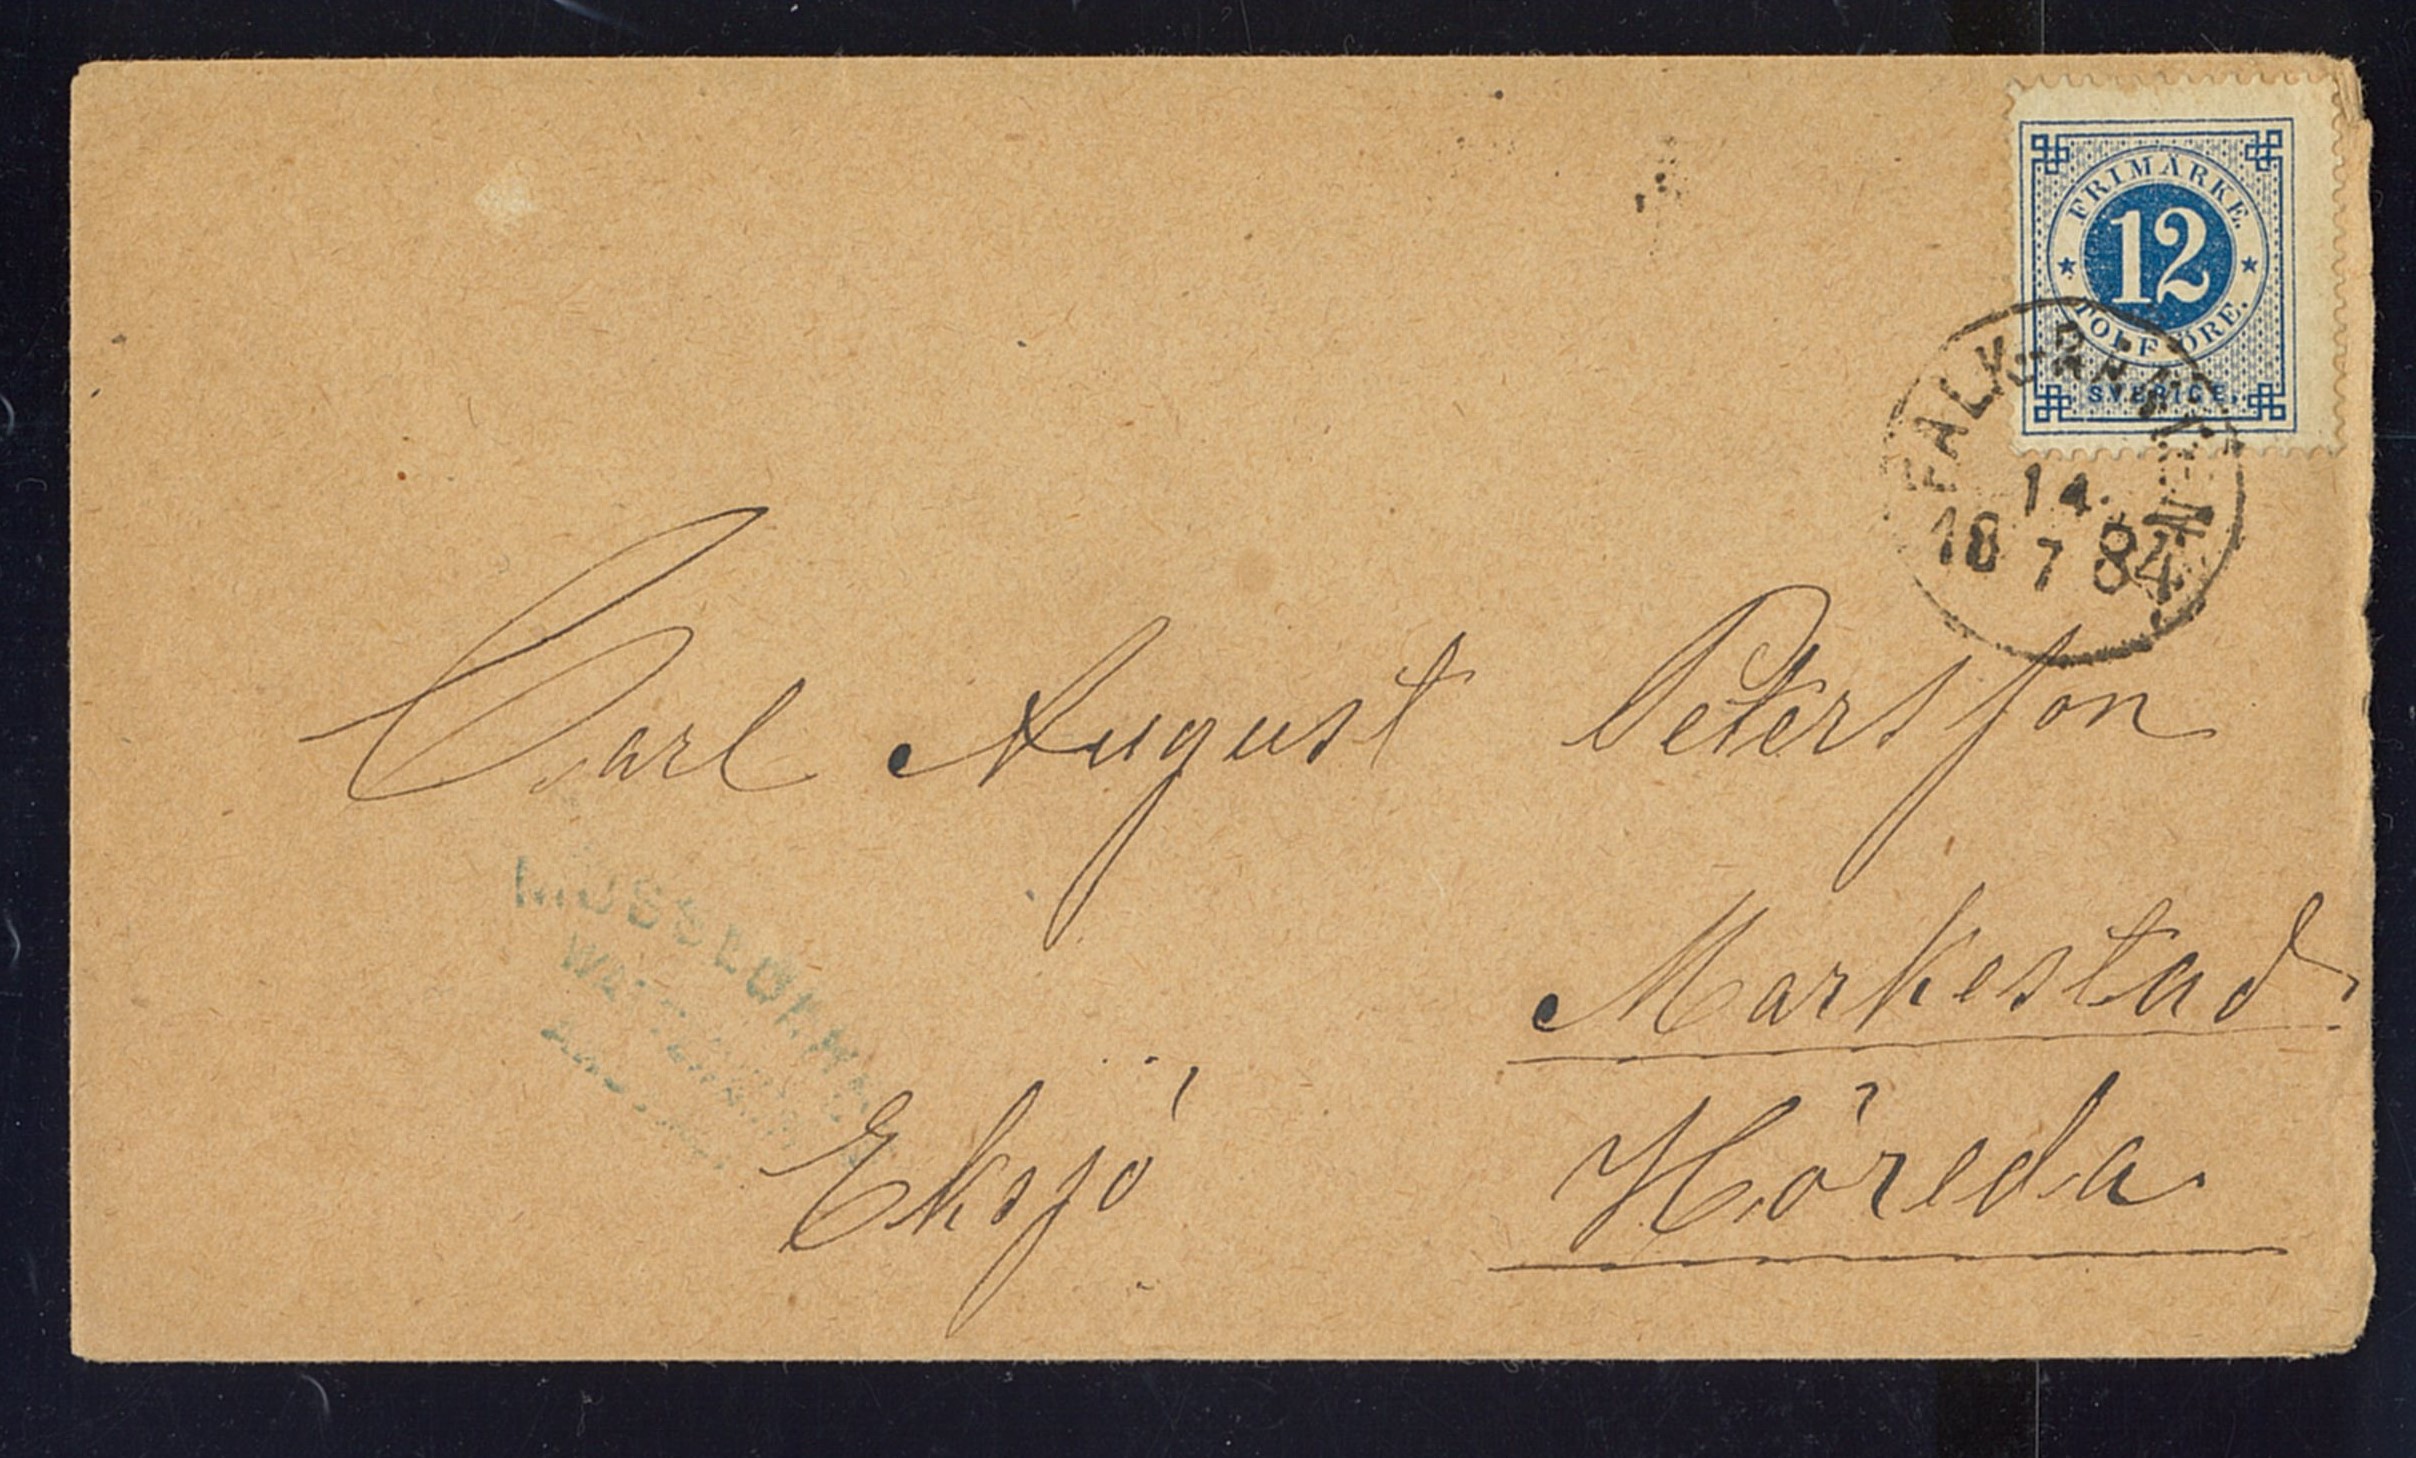 FRIMÄRKE.
12
TOLF ÖRE.
SVERIGE.
FALKÖRNEN
14.
18 7 84
Carl August Petersson
Markestad.
Höreda.
Eksjö